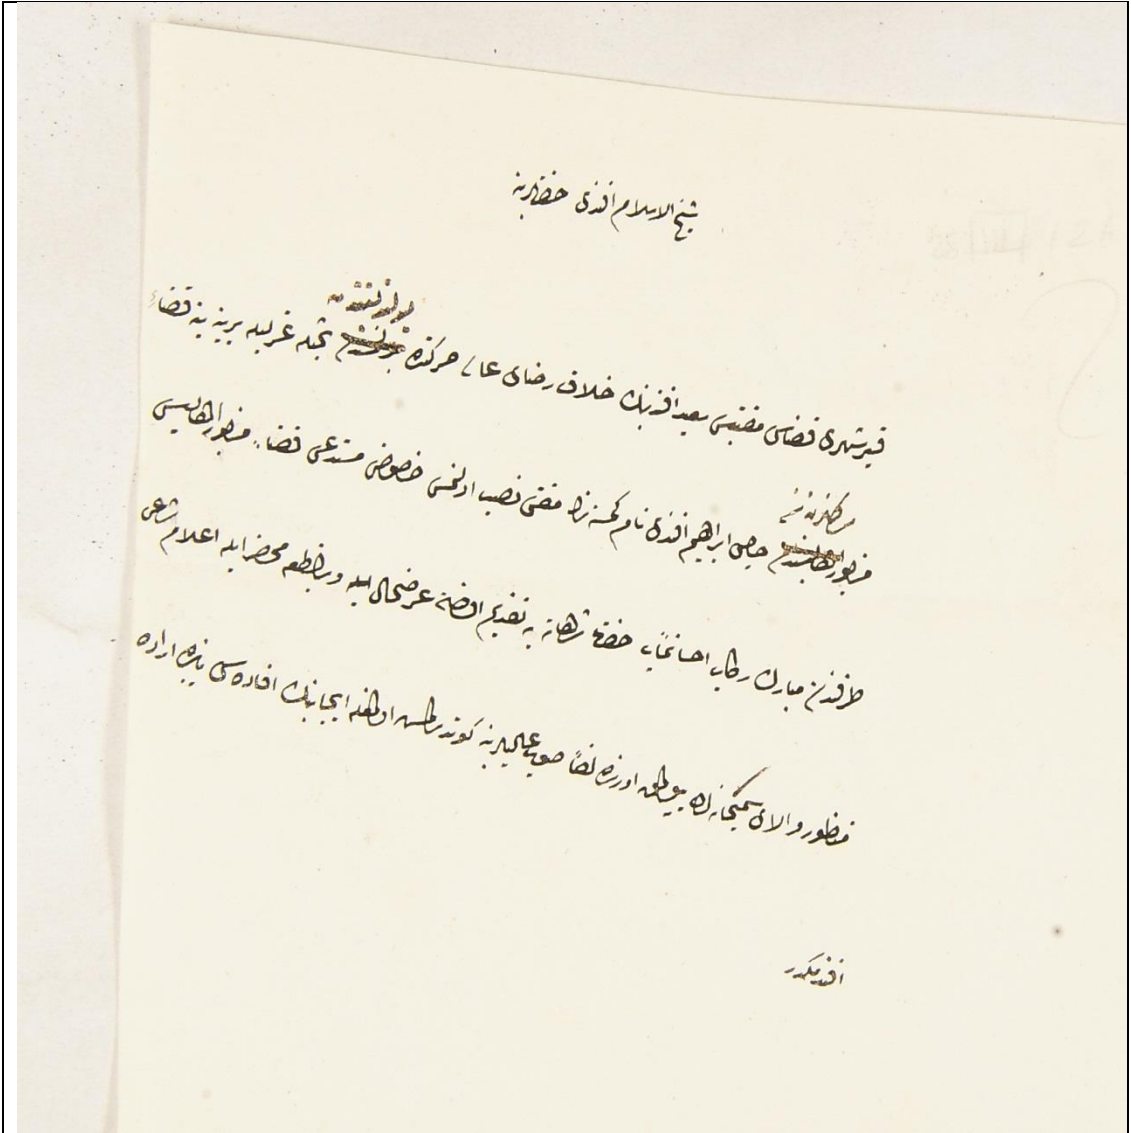 شيخ الاسلام افندى حضرتلرينه
قيرشهرى قضاسى مفتيسى سعيد افندينك خلاف رضاى عالى حركتده بولنديغندن بحثله عزليله يرينه ينه قضاء
مزبور اهاليسندن حاجى ابراهيم افندى نام كمسنه نك مفتى نصب اولنمسى خصوصى مستدعى قضاء مزبور اهاليسى
طرفندن مبارك ركاب حضرت شاهانه يه تقديم اولنان عرضحال ايله وبر قطعه محضر ايله اعلام شرعى
منظور والاى بيورلمق اوزره لفا صوب عاليلرينه كوندرلمش اولمغله ايجابنك افاده سى بابنده اراده
افندمكدر